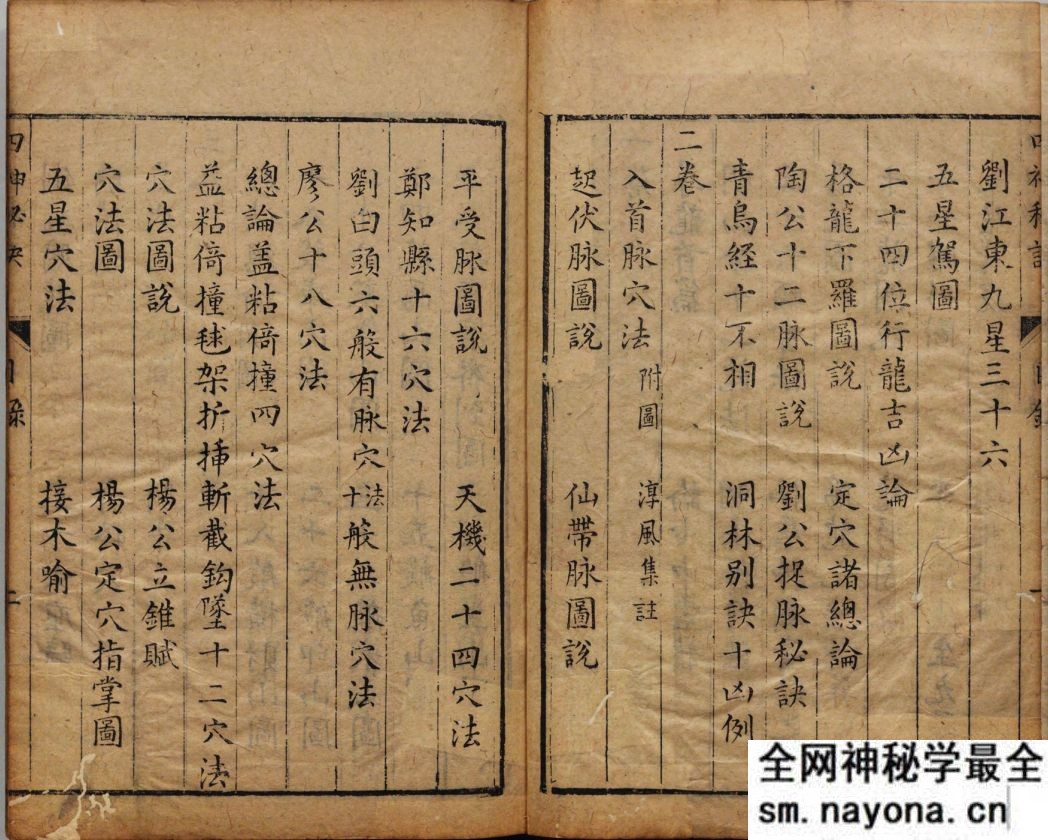 劉江東九星三十六
五星駕圖
二十四位行龍吉凶論
格龍下羅圖說 定穴諸總論
陶公十二脉圖說 劉公捉脉秘訣
青烏經十不相 洞林别訣十凶例
二卷
入首脉穴法 附圖 淳風集註
起伏脉圖說 仙帶脉圖說
平受脉圖說 天機二十四穴法
鄭知縣十六穴法
劉白頭六般有脉穴法 十般無脉穴法
廖公十八穴法
總論盖粘倚撞四穴法
盖粘倚撞毬架折揷斬截鈎墜十二穴法
穴法圖說 楊公立錐賦
穴法圖 楊公定穴指掌圖
五星穴法 接木喻
全网神秘学最全
sm.nayona.cn